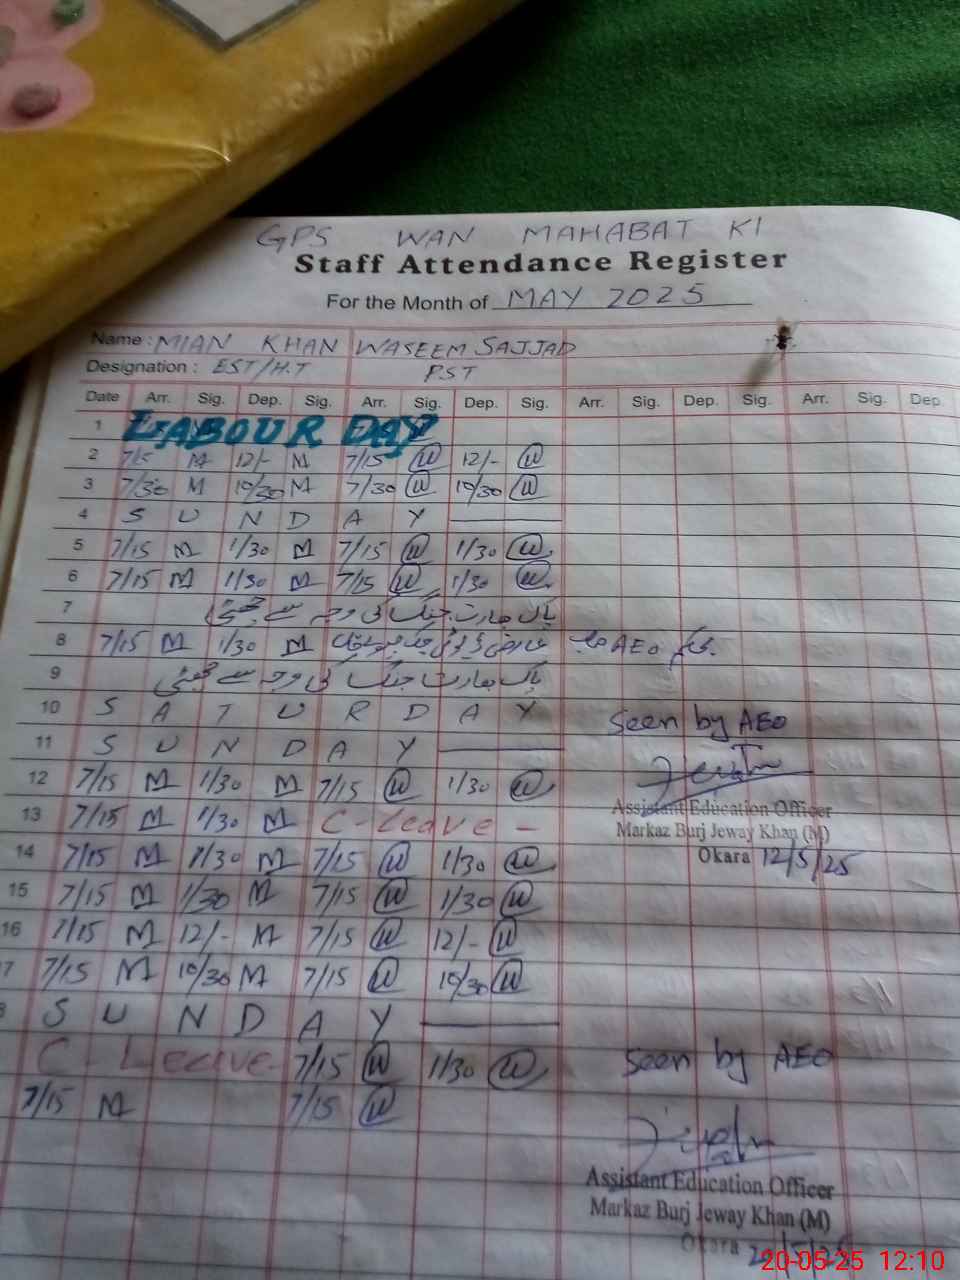 GPS WAN MAHABAT KI
Staff Attendance Register
For the Month of MAY 2025
Name : MIAN KHAN WASEEM SAJJAD
Designation : EST/H.T PST
Date Arr. Sig. Dep. Sig. Arr. Sig. Dep. Sig. Arr. Sig. Dep. Sig. Arr. Sig. Dep.
1 LABOUR DAY
2 7/15 M 12/- M 7/15 W 12/- W
3 7/30 M 10/30 M 7/30 W 10/30 W
4 S U N D A Y
5 7/15 M 1/30 M 7/15 W 1/30 W
6 7/15 M 1/30 M 7/15 W 1/30 W
7 پاک بھارت جنگ کی وجہ سے چھٹی
8 7/15 M 1/30 M AEO
9 پاک بھارت جنگ کی وجہ سے چھٹی
10 S A T U R D A Y Seen by AEO
11 S U N D A Y
12 7/15 M 1/30 M 7/15 W 1/30 W
Assistant Education Officer
13 7/15 M 1/30 M C Leave -
Markaz Burj Jeway Khan (M)
14 7/15 M 1/30 M 7/15 W 1/30 W
Okara 12/5/25
15 7/15 M 1/30 M 7/15 W 1/30 W
16 7/15 M 12/- M 7/15 W 12/- W
17 7/15 M 10/30 M 7/15 W 10/30 W
S U N D A Y
C - Leave - 7/15 W 1/30 W Seen by AEO
7/15 M 7/15 W
Assistant Education Officer
Markaz Burj Jeway Khan (M)
Okara 20/5/25
20-05-25 12:10